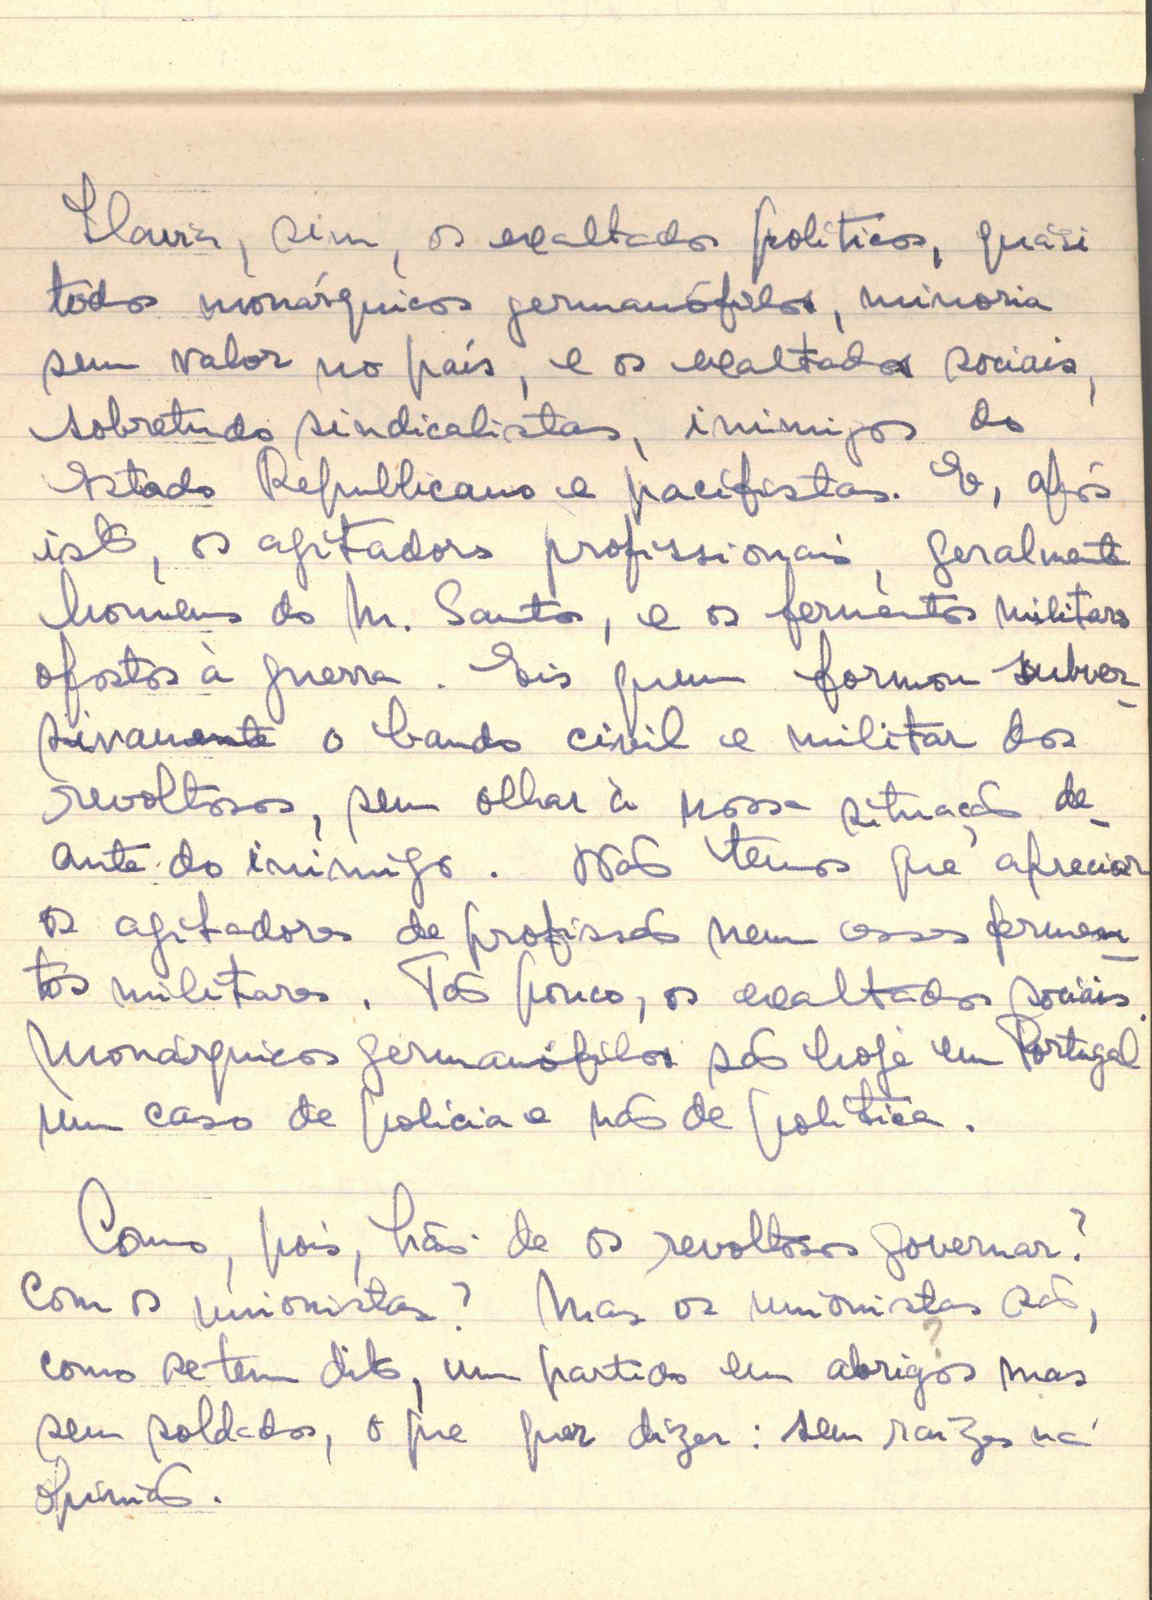 Haveria, sim, os exaltados políticos, quási
todos monárquicos germanófilos, minoria
sem valor no país, e os exaltados sociais,
sobretudo sindicalistas, inimigos do
Estado Republicano e pacifistas. E, após
isto, os agitadores profissionais, geralmente
homens do M. Santos, e os fermentos militares
opostos à guerra. Eis quem formou subver-
sivamente o bando civil e militar dos
revoltosos, sem olhar à nossa situação de-
ante do inimigo. Não temos que apreciar
os agitadores de profissão nem esses fermen-
tos militares. Tão pouco, os exaltados sociais.
Monárquicos germanófilos são hoje em Portugal
um caso de polícia e não de política.
Como, pois, hão-de os revoltosos governar?
Com os unionistas? Mas os unionistas são,
como se tem dito, um partido em abrigos mas
?
sem soldados, o que quer dizer: sem raízes na
opinião.